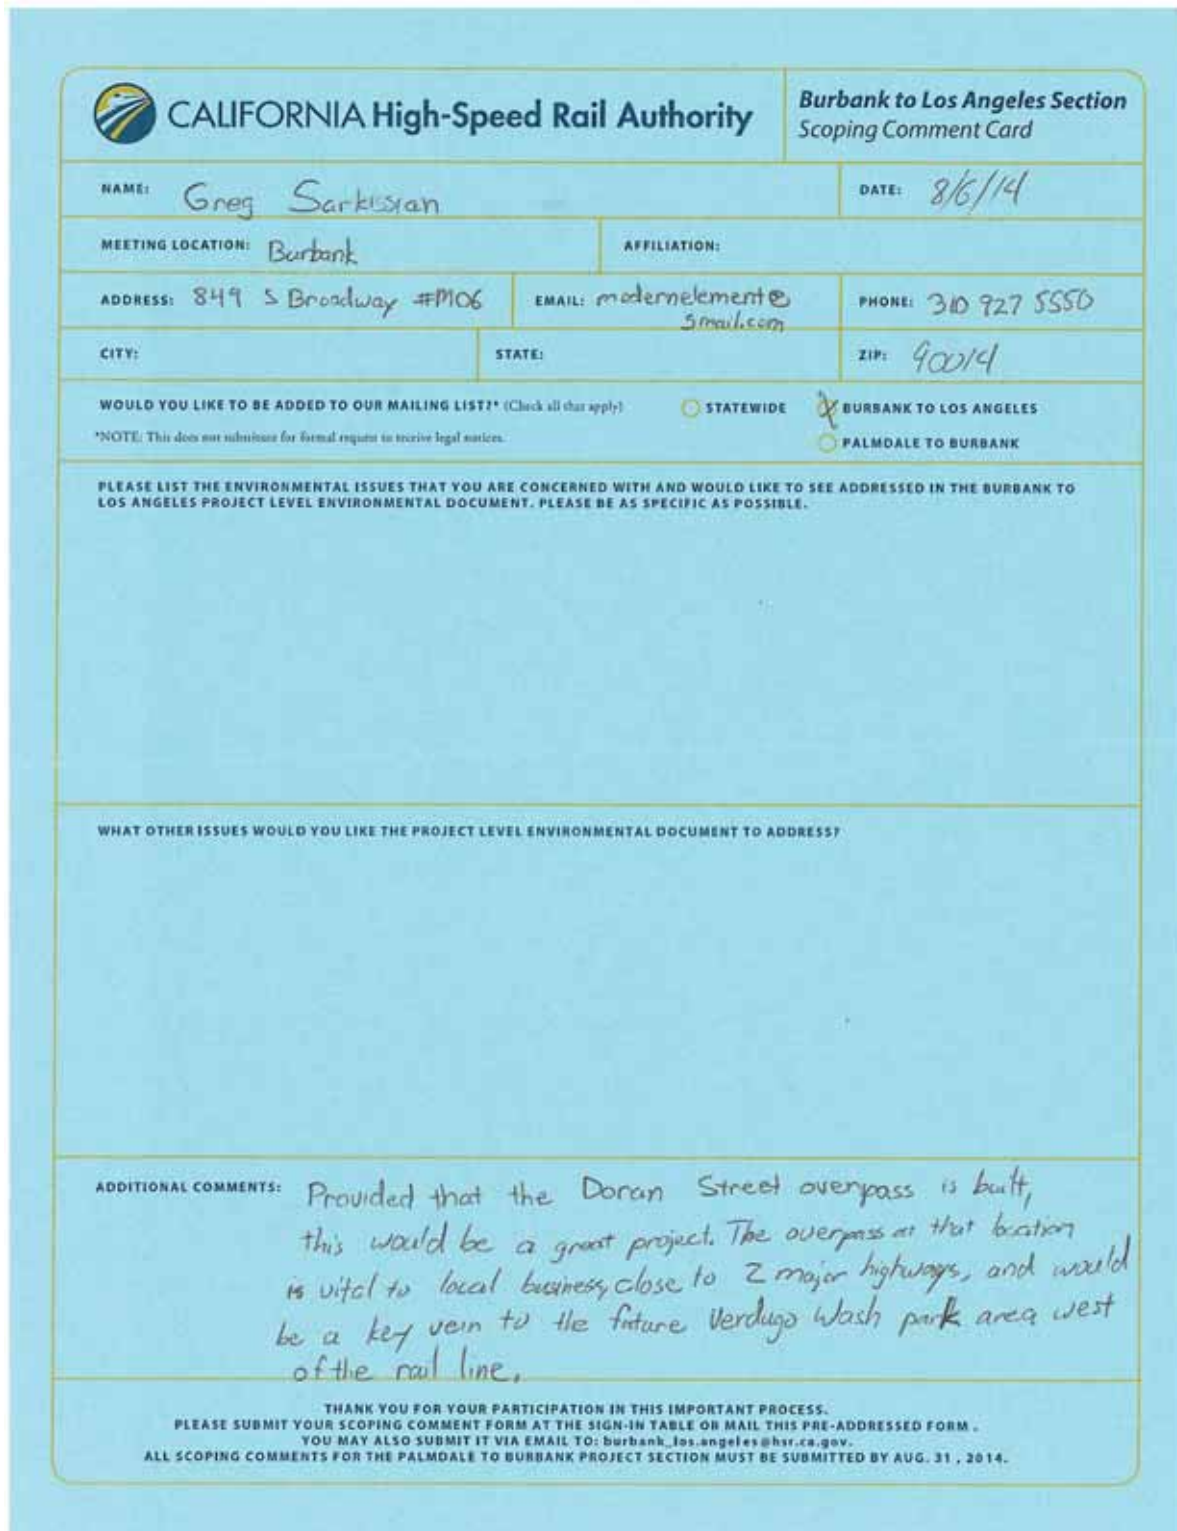 CALIFORNIA High-Speed Rail Authority
Burbank to Los Angeles Section
Scoping Comment Card
NAME: Greg Sarkissian
DATE: 8/6/14
MEETING LOCATION: Burbank
AFFILIATION:
ADDRESS: 849 S Broadway #M06
EMAIL: modernelement@
gmail.com
PHONE: 310 927 5550
CITY:
STATE:
ZIP: 90014
WOULD YOU LIKE TO BE ADDED TO OUR MAILING LIST?* (Check all that apply)
STATEWIDE
BURBANK TO LOS ANGELES
*NOTE: This does not substitute for formal request to receive legal notices.
PALMDALE TO BURBANK
PLEASE LIST THE ENVIRONMENTAL ISSUES THAT YOU ARE CONCERNED WITH AND WOULD LIKE TO SEE ADDRESSED IN THE BURBANK TO
LOS ANGELES PROJECT LEVEL ENVIRONMENTAL DOCUMENT. PLEASE BE AS SPECIFIC AS POSSIBLE.
WHAT OTHER ISSUES WOULD YOU LIKE THE PROJECT LEVEL ENVIRONMENTAL DOCUMENT TO ADDRESS?
ADDITIONAL COMMENTS: Provided that the Doran Street overpass is built,
this would be a great project. The overpass at that location
is vital to local business, close to 2 major highways, and would
be a key vein to the future Verdugo Wash park area west
of the rail line.
THANK YOU FOR YOUR PARTICIPATION IN THIS IMPORTANT PROCESS.
PLEASE SUBMIT YOUR SCOPING COMMENT FORM AT THE SIGN-IN TABLE OR MAIL THIS PRE-ADDRESSED FORM .
YOU MAY ALSO SUBMIT IT VIA EMAIL TO: burbank_los.angeles@hsr.ca.gov.
ALL SCOPING COMMENTS FOR THE PALMDALE TO BURBANK PROJECT SECTION MUST BE SUBMITTED BY AUG. 31 , 2014.